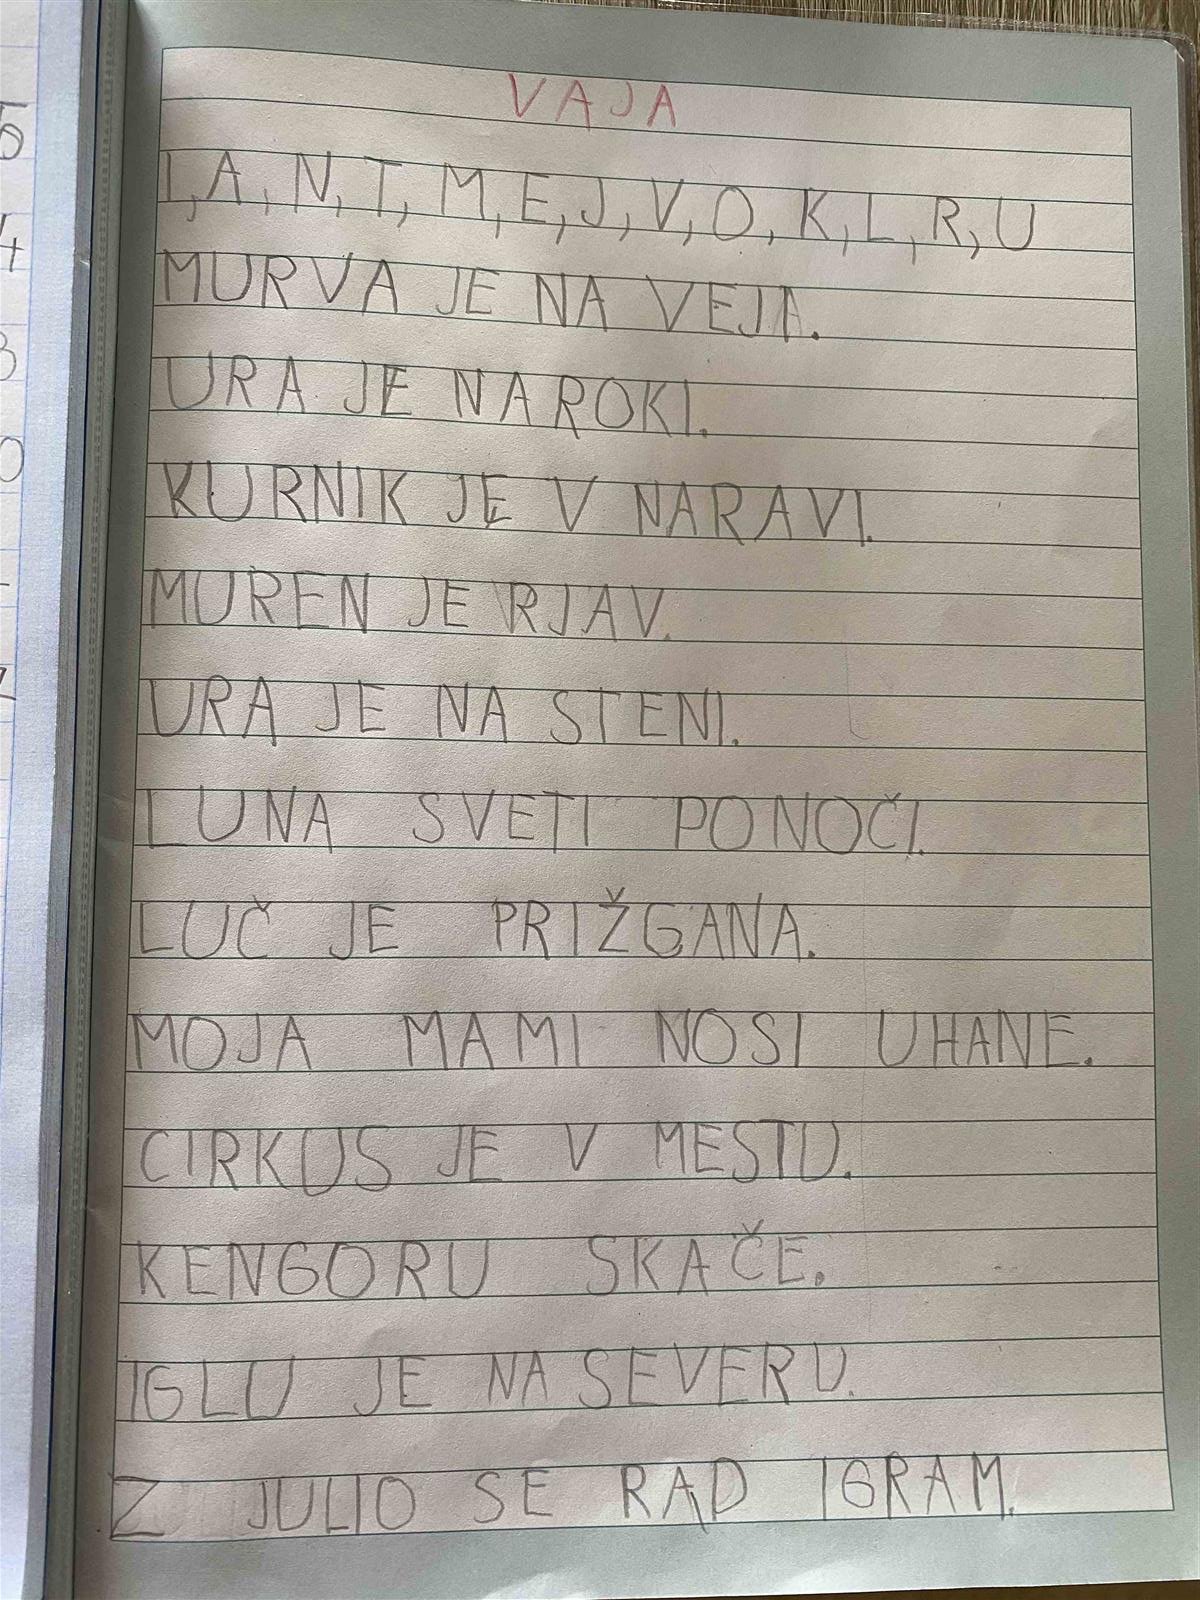 VAJA
I, A, N, T, M, E, J, V, O, K, L, R, U
MURVA JE NA VEJA.
URA JE NA ROKI.
KURNIK JE V NARAVI.
MUREN JE RJAV.
URA JE NA STENI.
LUNA SVETI PONOČI.
LUČ JE PRIŽGANA.
MOJA MAMI NOSI UHANE.
CIRKUS JE V MESTU.
KENGORU SKAČE.
IGLU JE NA SEVERU.
Z JULIO SE RAD IGRAM.